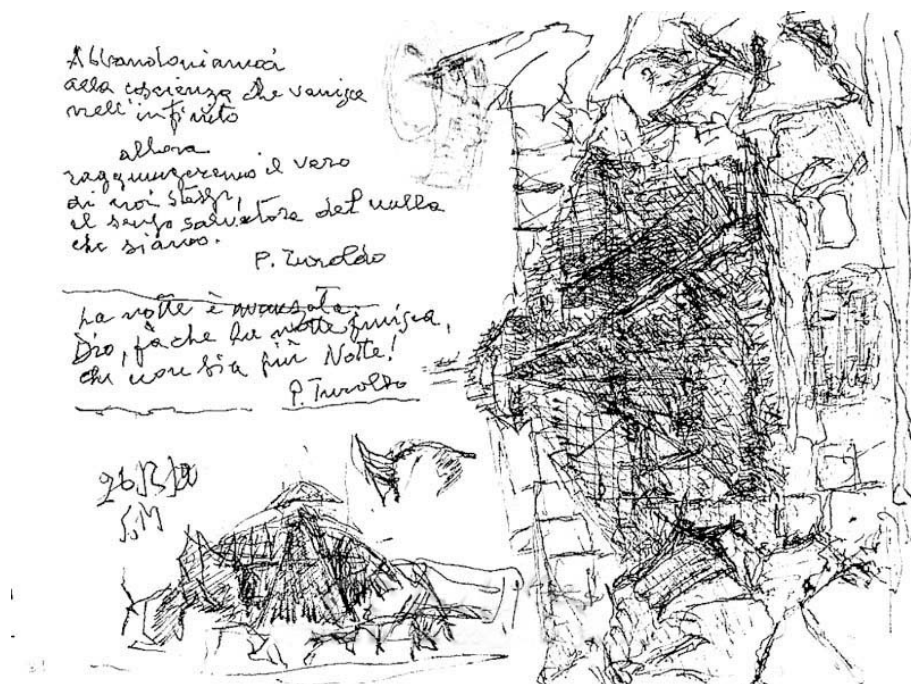 Abbandoniamoci
alla coscienza che vanisce
nell'infinito
allora
raggiungeremo il vero
di noi stessi,
il senso salvatore del nulla
che siamo.
P. Turoldo
La notte è avanzata.
Dio, fa che la notte finisca,
che non sia più Notte!
P. Turoldo